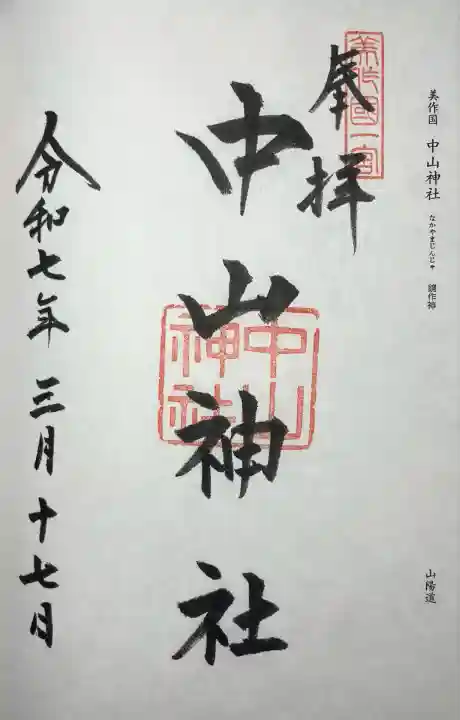 美作国 中山神社 なかやまじんじゃ 鏡作神
山陽道
奉拝
美作國一宮
中山神社
中山神社
令和七年 三月十七日